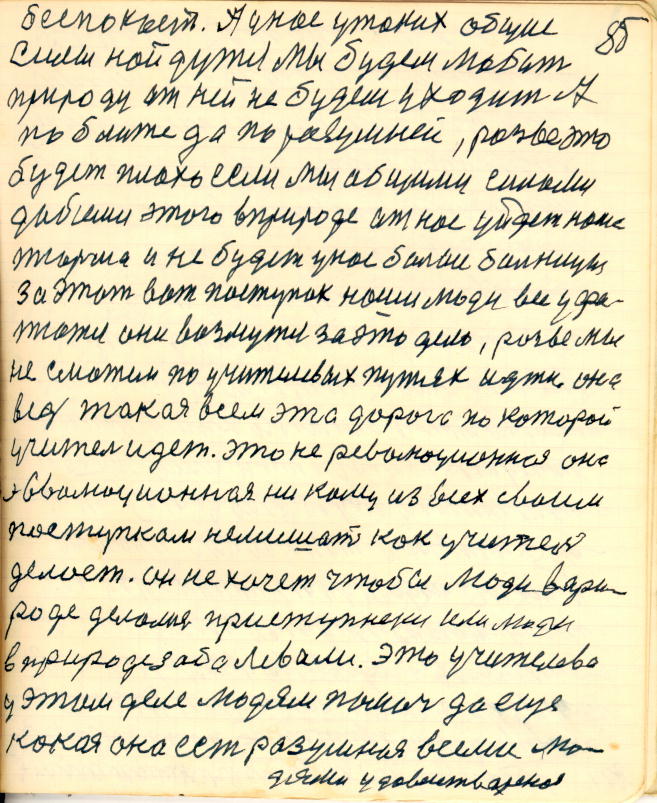 беспокоет. А унас утаких общие
85
силы ной дутсI мы будем любит
природу от ней не будем уходит А
по ближе да по разумней, розве это
будет плохо если мы общими силами
добеми этого в природе от нас уйдет
тюрма и не будет унас более болници
за этот вот поступок ноши люди все
они возмутся за это дело, розве мы
не сможем по учителевых путях идти. она
вед такая всем эта дорога по которой
учител идет. это не революционная она
эвволюционная ни кому из всех своим
поступкам немишат кок учител
делоет. он не хочет чтобы люди вари-
роде делолис приступнеки или люди
в природе заболевали. Это учителево
у этом деле людям помоч да еще
кокая она ест разумная всеми лю-
дями удовлетварена